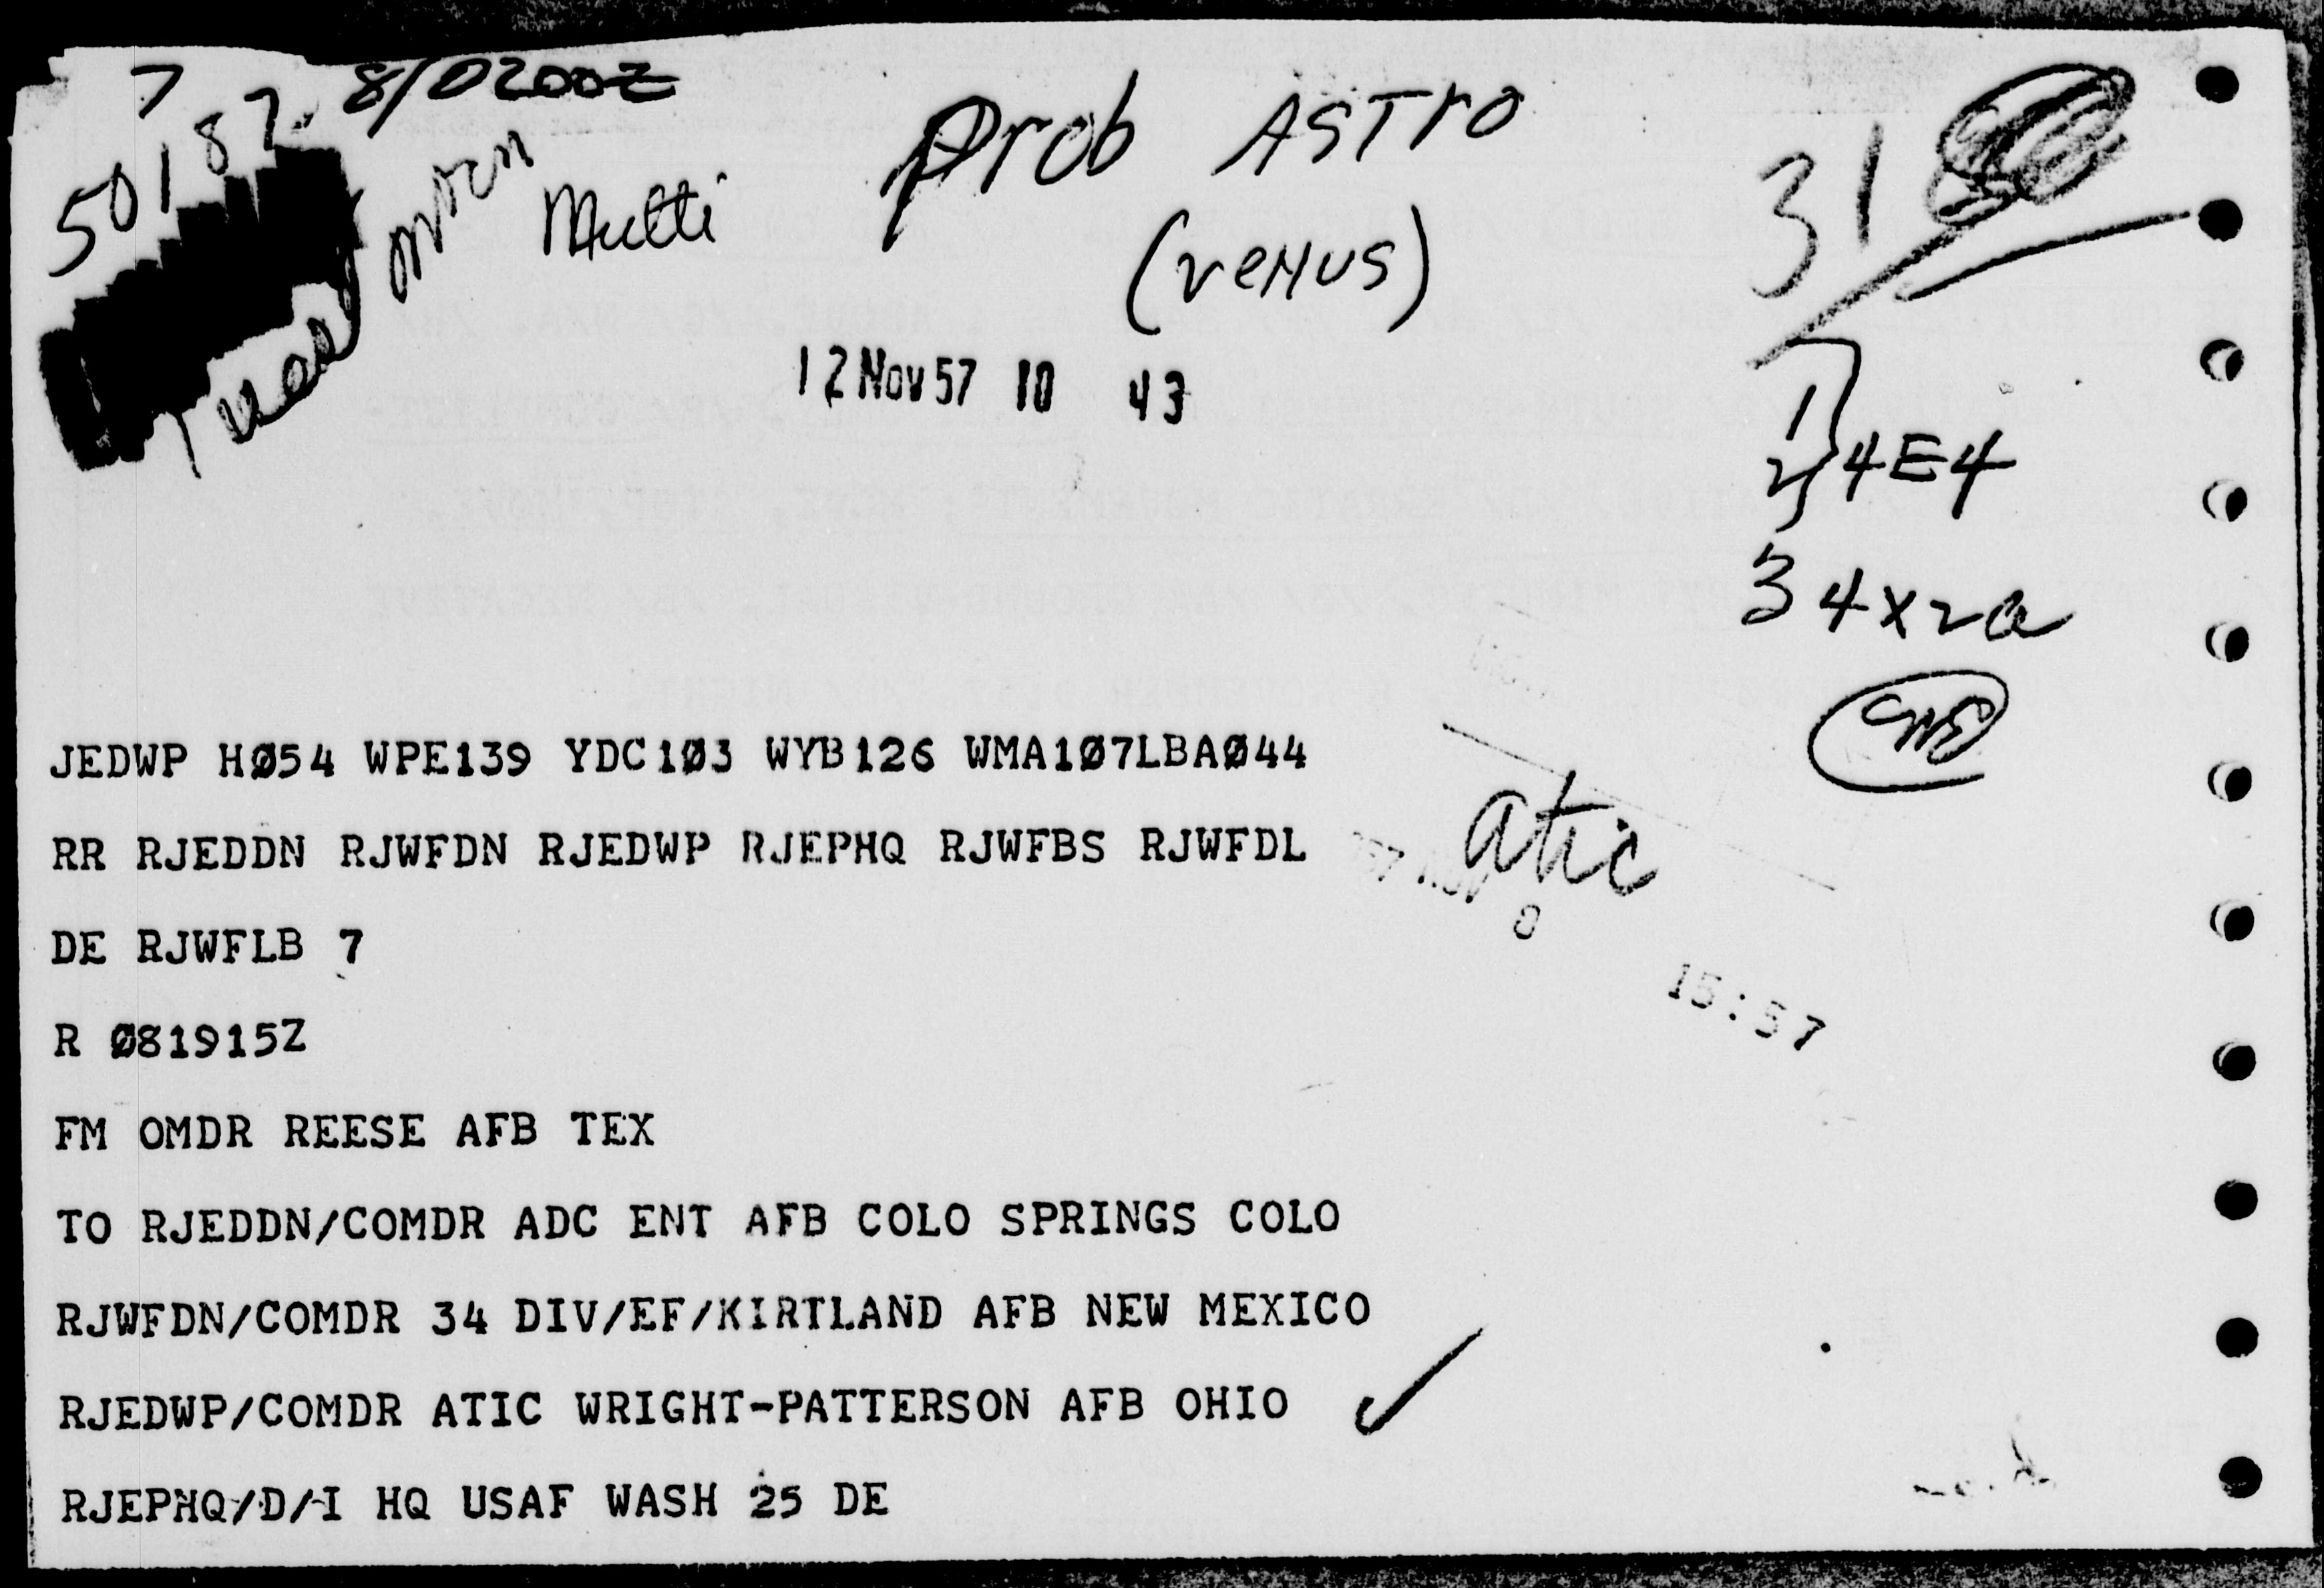 7
50187. 8/0200Z
Multi
Prob ASTro
(VeNUS)
31
12 Nov 57 10 43
1
2 } 4E4
3 4X2a
JEDWP HØ54 WPE139 YDC1Ø3 WYB126 WMA1Ø7LBAØ44
RR RJEDDN RJWFDN RJEDWP RJEPHQ RJWFBS RJWFDL
atic
57 NOV 8 15:57
DE RJWFLB 7
R Ø81915Z
FM OMDR REESE AFB TEX
TO RJEDDN/COMDR ADC ENT AFB COLO SPRINGS COLO
RJWFDN/COMDR 34 DIV/EF/KIRTLAND AFB NEW MEXICO
RJEDWP/COMDR ATIC WRIGHT-PATTERSON AFB OHIO
RJEPHQ/D/I HQ USAF WASH 25 DE